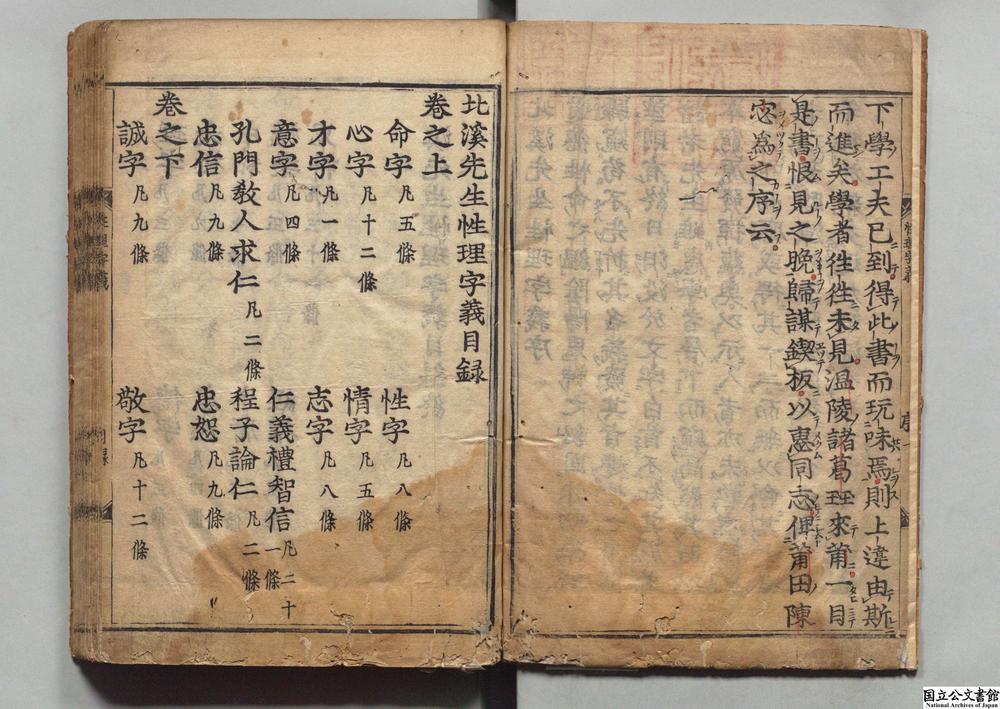 下學工夫已到得此書而玩味焉則上達由斯
而進矣學者徃徃未見溫陵諸葛珵來莆一目
是書恨見之晚歸謀鋟板以惠同志俾莆田陳
宓為之序云
北溪先生性理字義目録
卷之上
命字 凡五條 性字 凡八條
心字 凡十二條 情字 凡五條
才字 凡一條 志字 凡八條
意字 凡四條 仁義禮智信 凡二十一條
孔門敎人求仁 凡二條 程子論仁 凡二條
忠信 凡九條 忠恕 凡九條
卷之下
誠字 凡九條 敬字 凡十二條
国立公文書館
National Archives of Japan